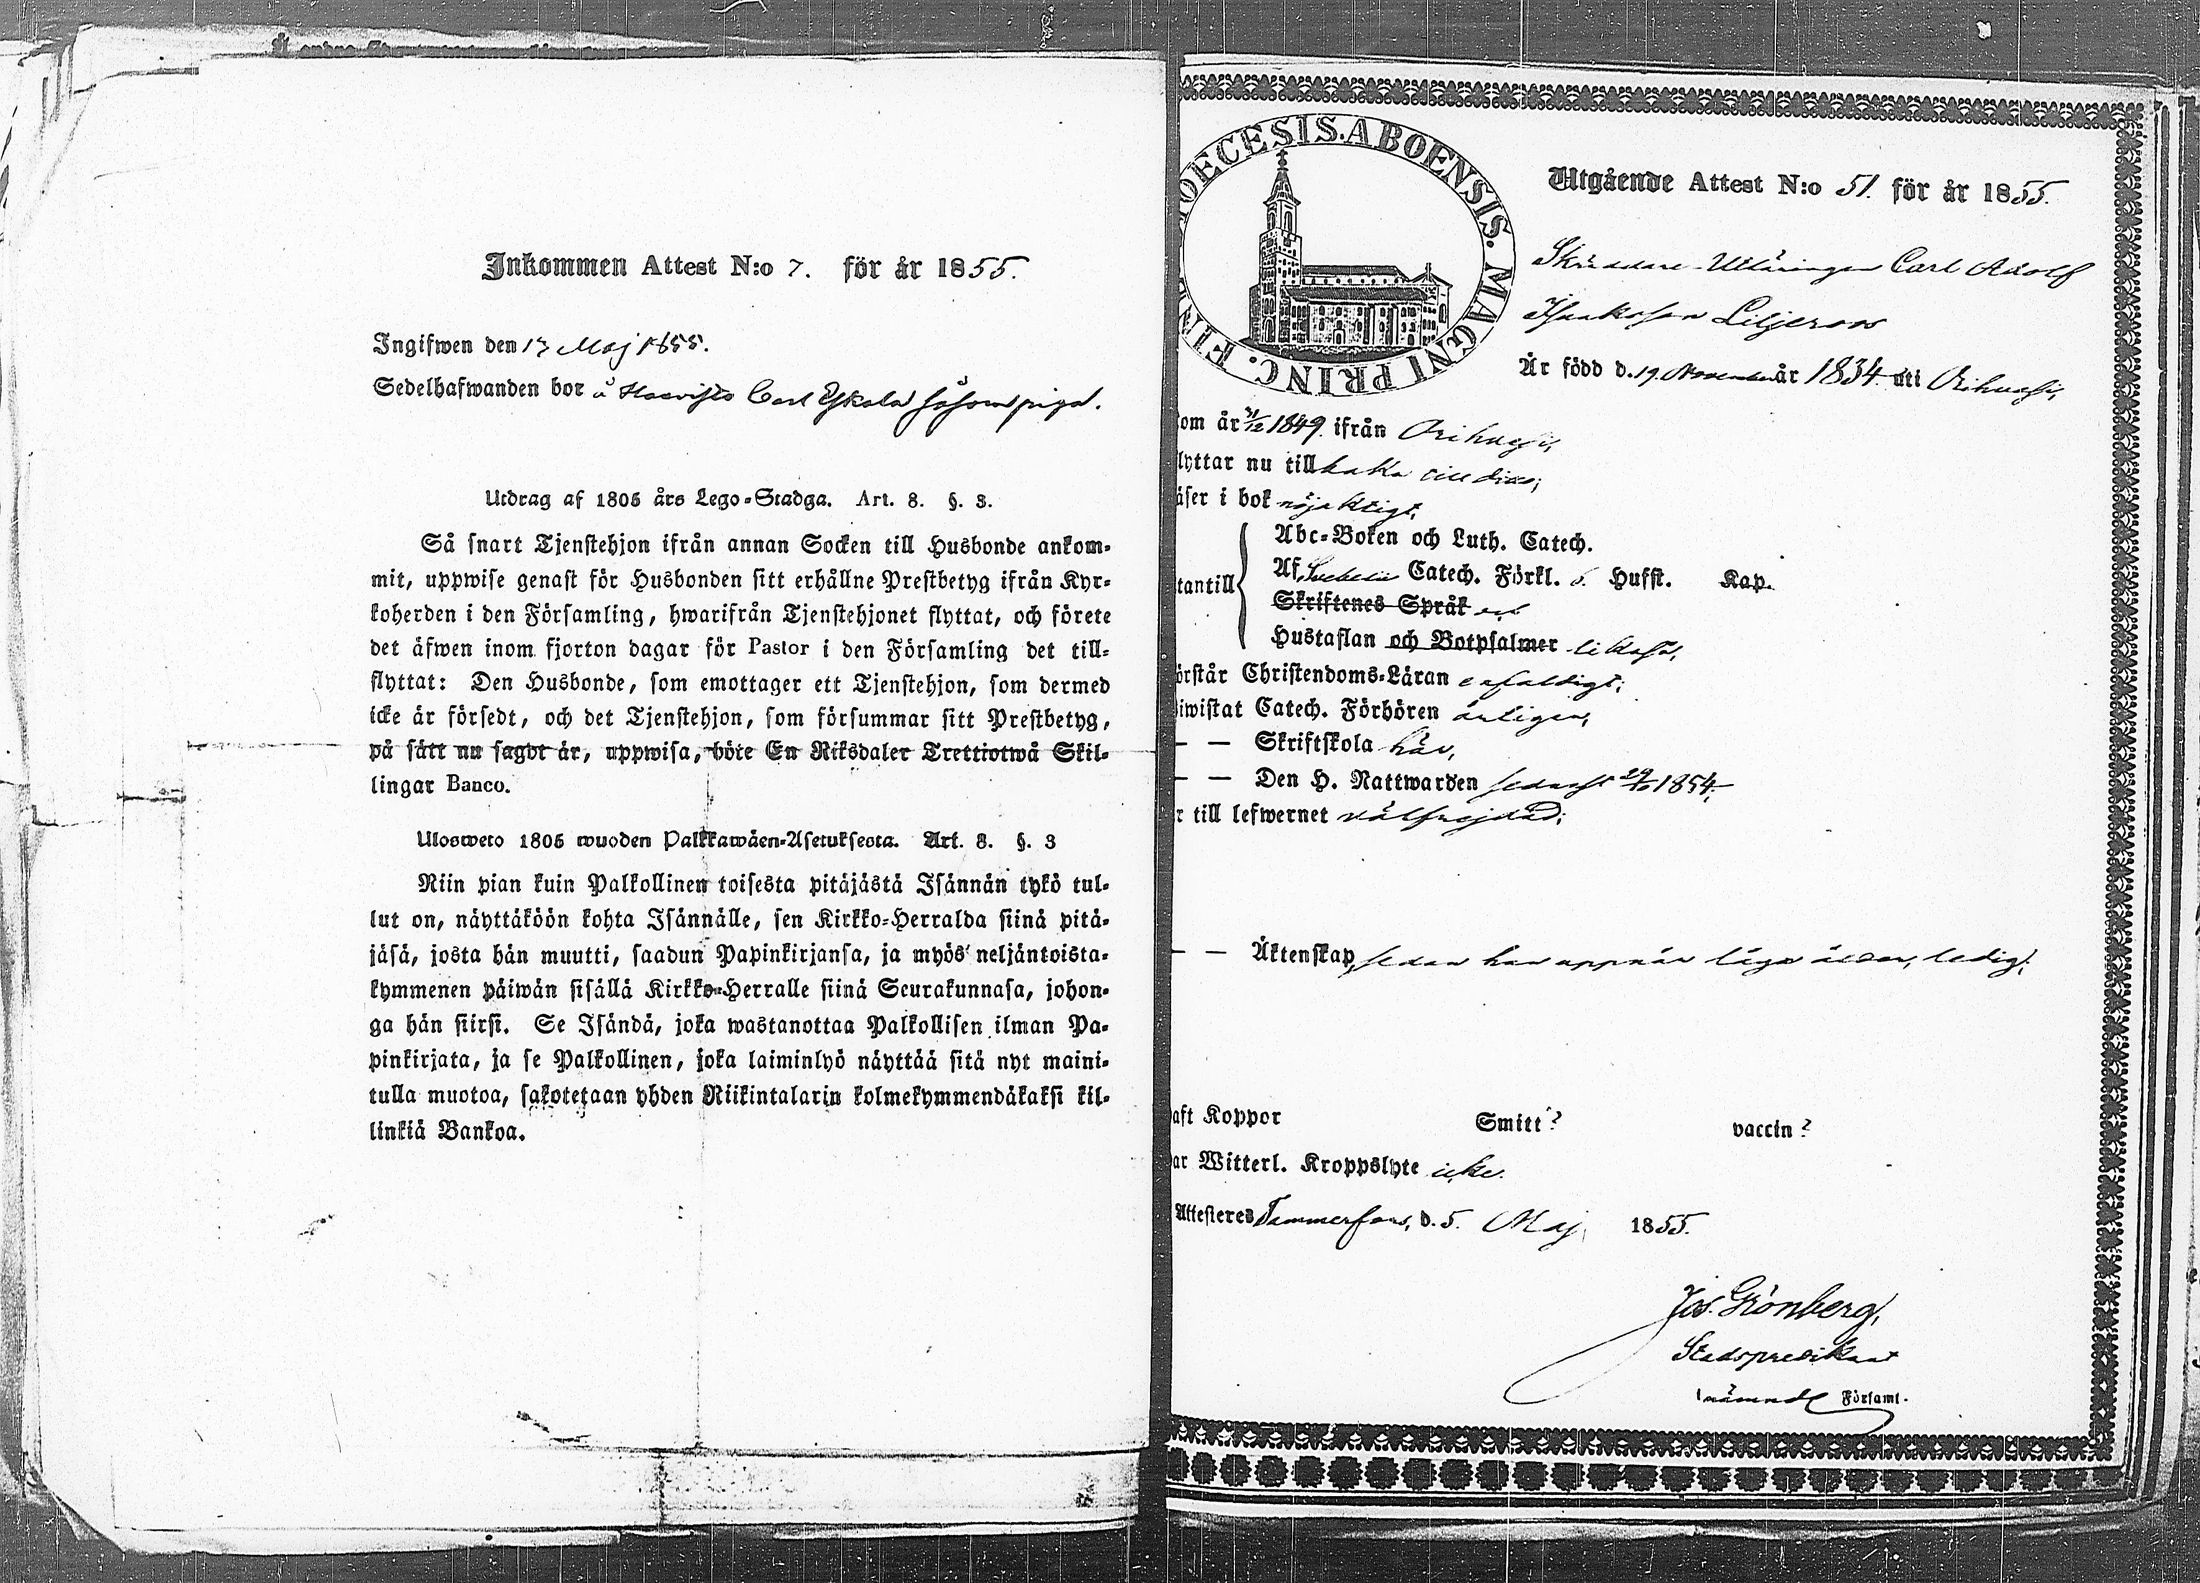 Inkommen Attest N:o 7. för år 1855.
Ingifwen den 17 Maj 1855.
Sedelhafwanden bor å Haavisto Carl Eskola såsom piga.
Utdrag af 1805 års Lego-Stadga. Art. 8. §. 3.
Så snart Tjenstehjon ifrån annan Socken till Husbonde ankom-
mit, uppwise genast för Husbonden sitt erhållne Prestbetyg ifrån Kyr-
koherden i den Församling, hwarifrån Tjenstehjonet flyttat, och förete
det äfwen inom fjorton dagar för Pastor i den Församling det till-
flyttat: Den Husbonde, som emottager ett Tjenstehjon, som dermed
icke är försedt, och det Tjenstehjon, som försummar sitt Prestbetyg,
på sätt nu sagdt är, uppwisa, böte En Riksdaler Trettiotwå Skil-
lingar Banco.
Ulosweto 1805 wuoden Palkkawäen-Asetuksesta. Art. 8. §. 3
Niin pian kuin Palkollinen toisesta pitäjästä Isännän tykö tul-
lut on, näyttäköön kohta Isännälle, sen Kirkko-Herralda siinä pitä-
jäsä, josta hän muutti, saadun Papinkirjansa, ja myös neljäntoista-
kymmenen päiwän sisällä Kirkko-Herralle siinä Seurakunnasa, johon-
ga hän siirsi. Se Isändä, joka wastanottaa Palkollisen ilman Pa-
pinkirjata, ja se Palkollinen, joka laiminlyö näyttää sitä nyt maini-
tulla muotoa, sakotetaan yhden Riikintalarin kolmekymmendäkaksi kil-
linkiä Bankoa.
OECESIS. ABOENSIS. MAGNI PRINC. FIN
Utgående Attest N:o 51. för år 1855.
Skräddare-Utläringen Carl Adolf
Isaaksson Liljeroos
Är född d. 19. November år 1834 uti Orihvesi,
om år 31/12 1849. ifrån Orihvesi,
lyttar nu tillbaka till dito;
äser i bok nöjaktigt,
Abc-Boken och Luth. Catech.
tantill Af Svebelii Catech. Förkl. 5. Hufst. Kap.
Skriftenes Språk
Hustaflan och Botpsalmer likaså,
örstår Christendoms-Läran enfaldigt;
iwistat Catech. Förhören årligen,
— — Skriftskola här,
— — Den H. Nattwarden sednast 29/10 1854;
r till lefwernet välfrejdad;
— — Äktenskap, sedan han uppnår laga ålder, ledig;
aft Koppor Smitt? vaccin?
ar Witterl. Kroppslyte icke.
Attesteres Tammerfors, d. 5. Maj 1855.
Jos. Grönberg,
Stadspredikant
i nämnde Församl.